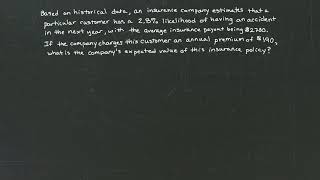 Based on historical data, an insurance company estimates that a
particular customer has a 2.8% likelihood of having an accident
in the next year, with the average insurance payout being $2700.
If the company charges this customer an annual premium of $190,
what is the company's expected value of this insurance policy?